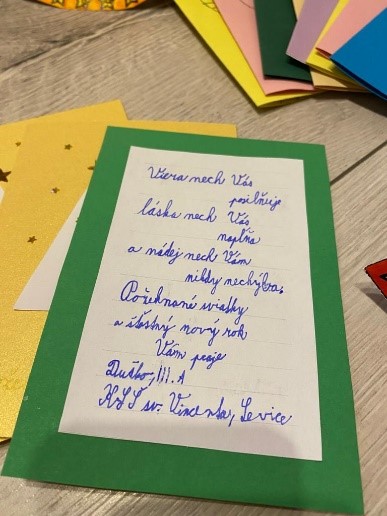 Viera nech Vás
posilňuje
láska nech Vás
napĺňa
a nádej nech Vám
nikdy nechýba.
Požehnané sviatky
a šťastný nový rok
Vám praje
Duško, III. A
KZŠ sv. Vincenta, Levice